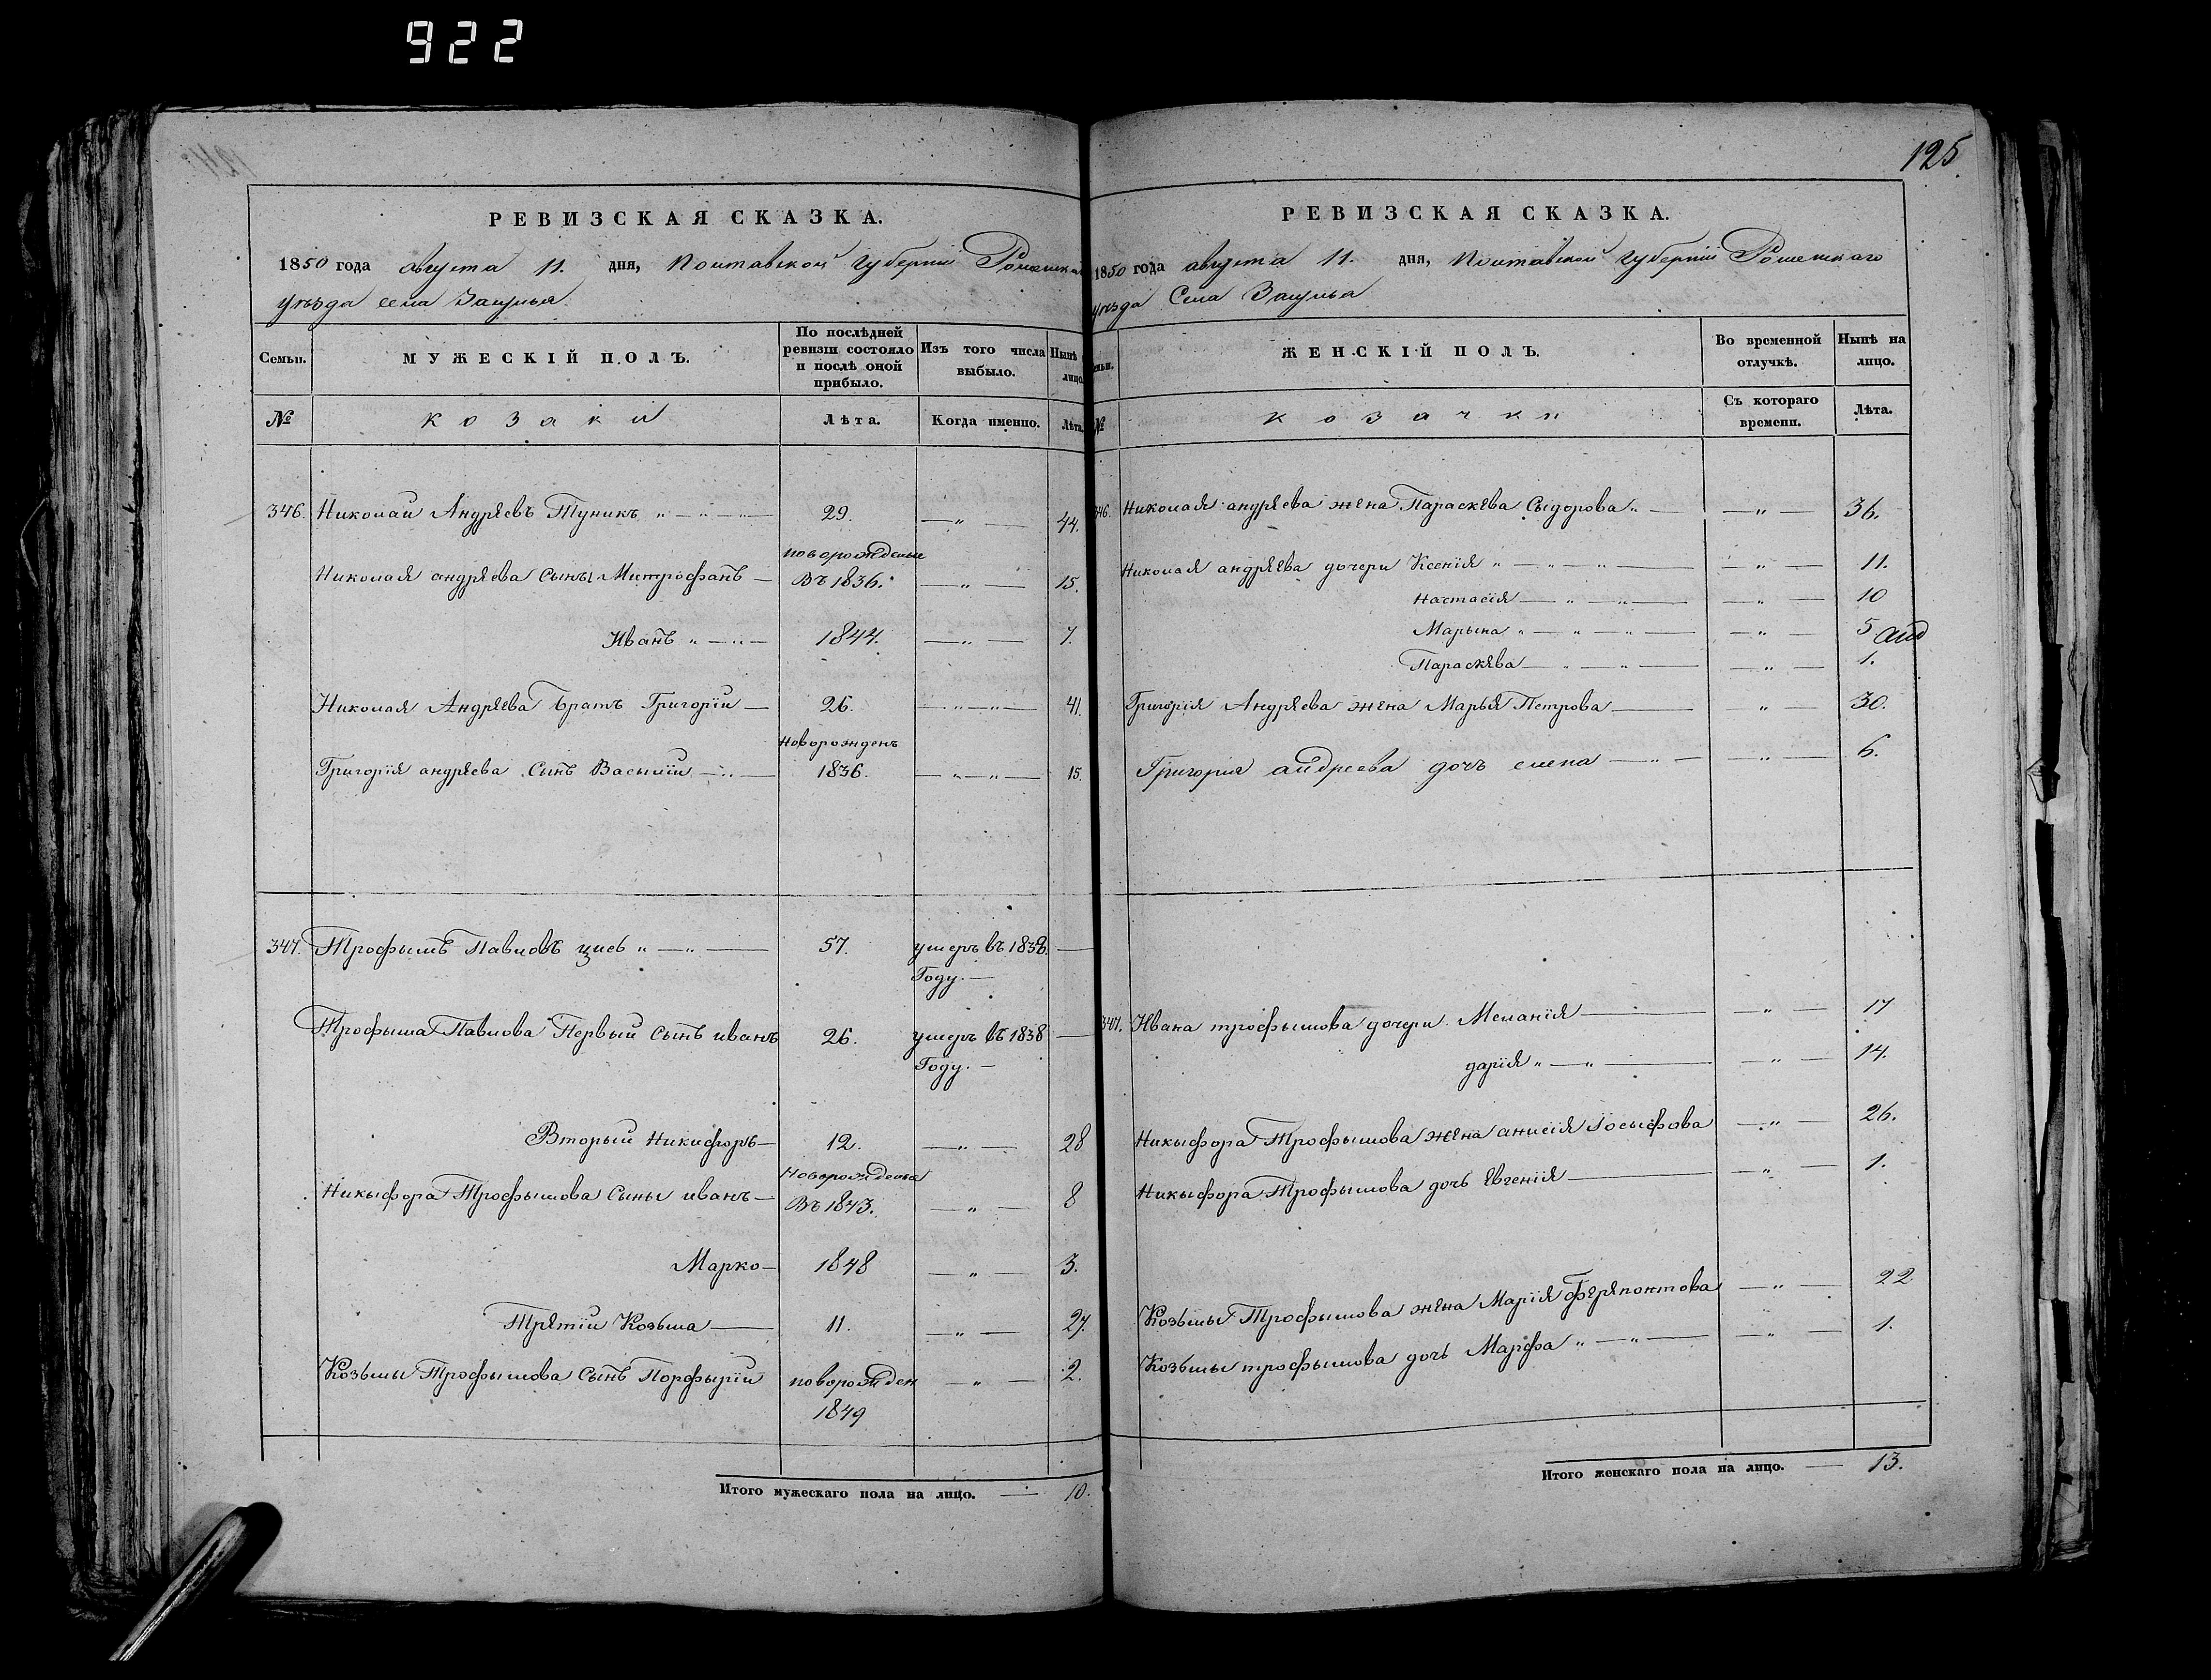 922
125.
РЕВИЗСКАЯ СКАЗКА.
1850 года августа 11. дня, Полтавской губерніи Роменска
уѣзда села Засулья
Семьи.
МУЖЕСКІЙ ПОЛЪ.
По послѣдней ревизіи состояло и послѣ оной прибыло.
Изъ того числа выбыло.
Нынѣ лицо.
№
козаки
Лѣта.
Когда именно.
Лѣта.
346. Николай Андрѣевъ Туникъ „ — „ — „ — 29. — „ — 44.
новорожденые
Николая андрѣева Сыны Митрофанъ — Въ 1836. — „ — 15.
Иванъ „ — „ — 1844. — „ — 7.
Николая Андрѣева братъ Григорій — 26. — „ — „ — 41.
новорожденъ
Григорія андрѣева Сынъ Василій — „ — 1836. — „ — „ — 15.
347. Трофымъ Павловъ „ — „ — 57. умеръ въ 1838. —
Году. —
Трофыма Павлова Первый Сынъ иванъ 26. умеръ въ 1838 —
Году. —
Вторый Никифоръ — 12. — „ — 28
Новорожденые
Никыфора Трофымова Сыны иванъ — Въ 1843. — „ — 8
Марко — 1848 — „ — 3.
Трѣтій Козьма — 11. — „ — 27.
Козьмы Трофымова Сынъ Порфырій новорожден — „ — 2.
1849
Итого мужескаго пола на лицо. — 10.
РЕВИЗСКАЯ СКАЗКА.
1850 года августа 11. дня, Полтавской губерніи Роменскаго
уѣзда Села Засулья
ЖЕНСКІЙ ПОЛЪ.
Во временной отлучкѣ.
Нынѣ на лицо.
№
козачки
Съ котораго времени.
Лѣта.
346. Николая андрѣева жена Параскѣва Сыдорова „ — — „ — 36.
Николая андрѣева дочери Ксенія „ — „ — „ — — „ — 11.
Настасія — „ — „ — — „ — 10
Марына „ — „ — „ — — „ — 5
Параскѣва — „ — „ — — „ — 1.
Григорія Андрѣева жена Марья Петрова — „ — 30.
Григорія андреева дочъ елена — „ — — „ — 6.
347. Ивана трофымова дочери Меланія — — „ — 17
дарія „ — „ — — „ — 14.
Никыфора Трофымова жена анисія Іосыфова — „ — 26.
Никыфора Трофымова дочь Евгенія — — „ — 1.
Козьмы Трофымова жена Марія Ферапонтова — „ — 22
Козьмы трофымова дочь Марфа „ — „ — — „ — 1.
Итого женскаго пола на лицо. — 13.